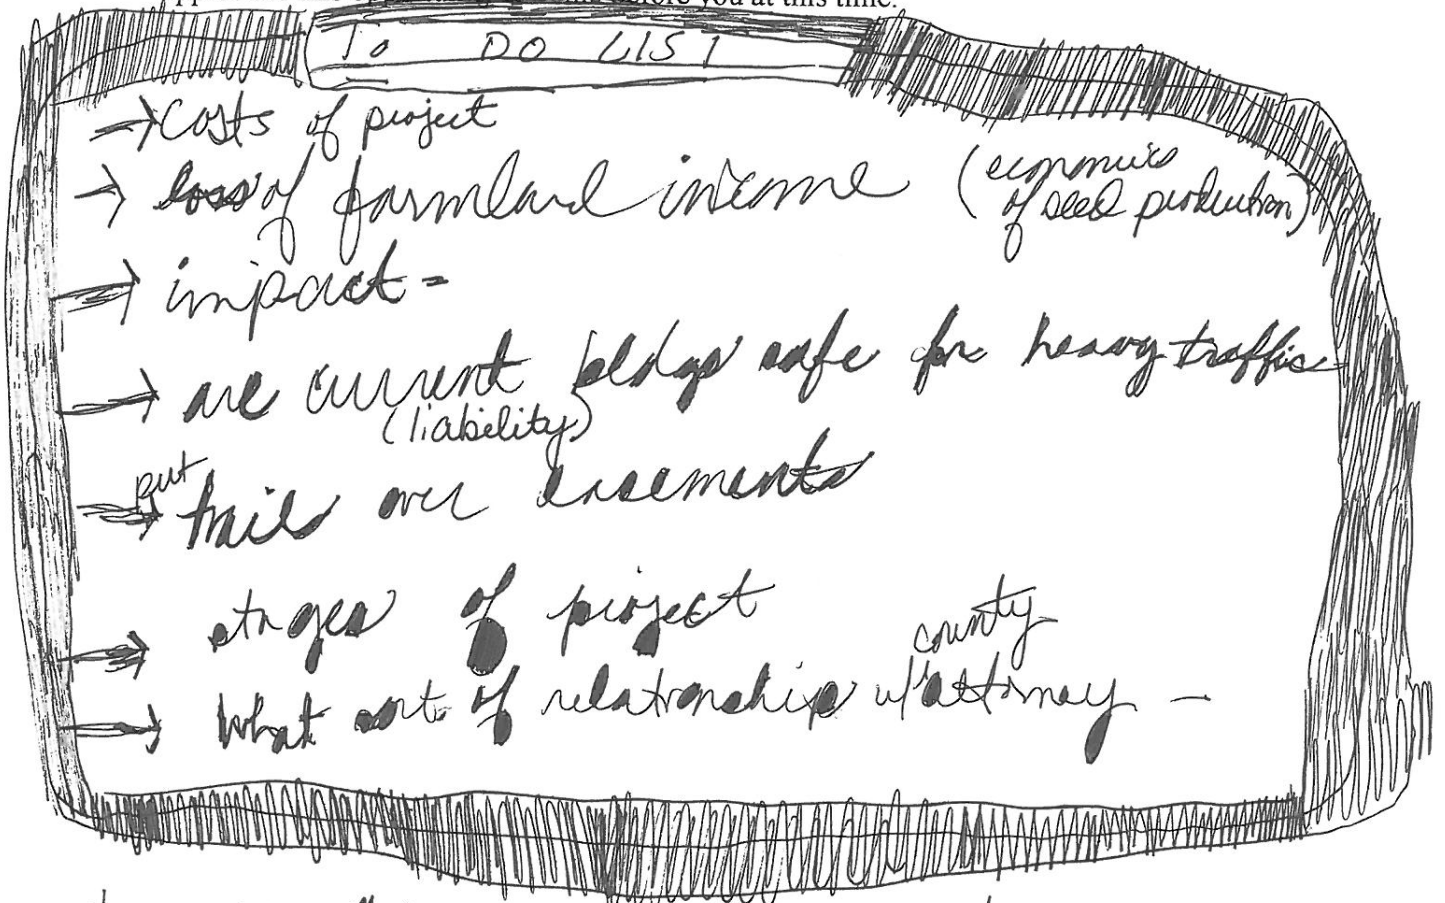 before you at this time.
To DO LIST
→ Costs of project
→ loss of farmland income (economics
of seed production)
→ impact =
→ are current bldgs safe for heavy traffic
(liability)
put
→ trails over easements
→ stages of project
county
→ What sort of relationship w/ attorney –